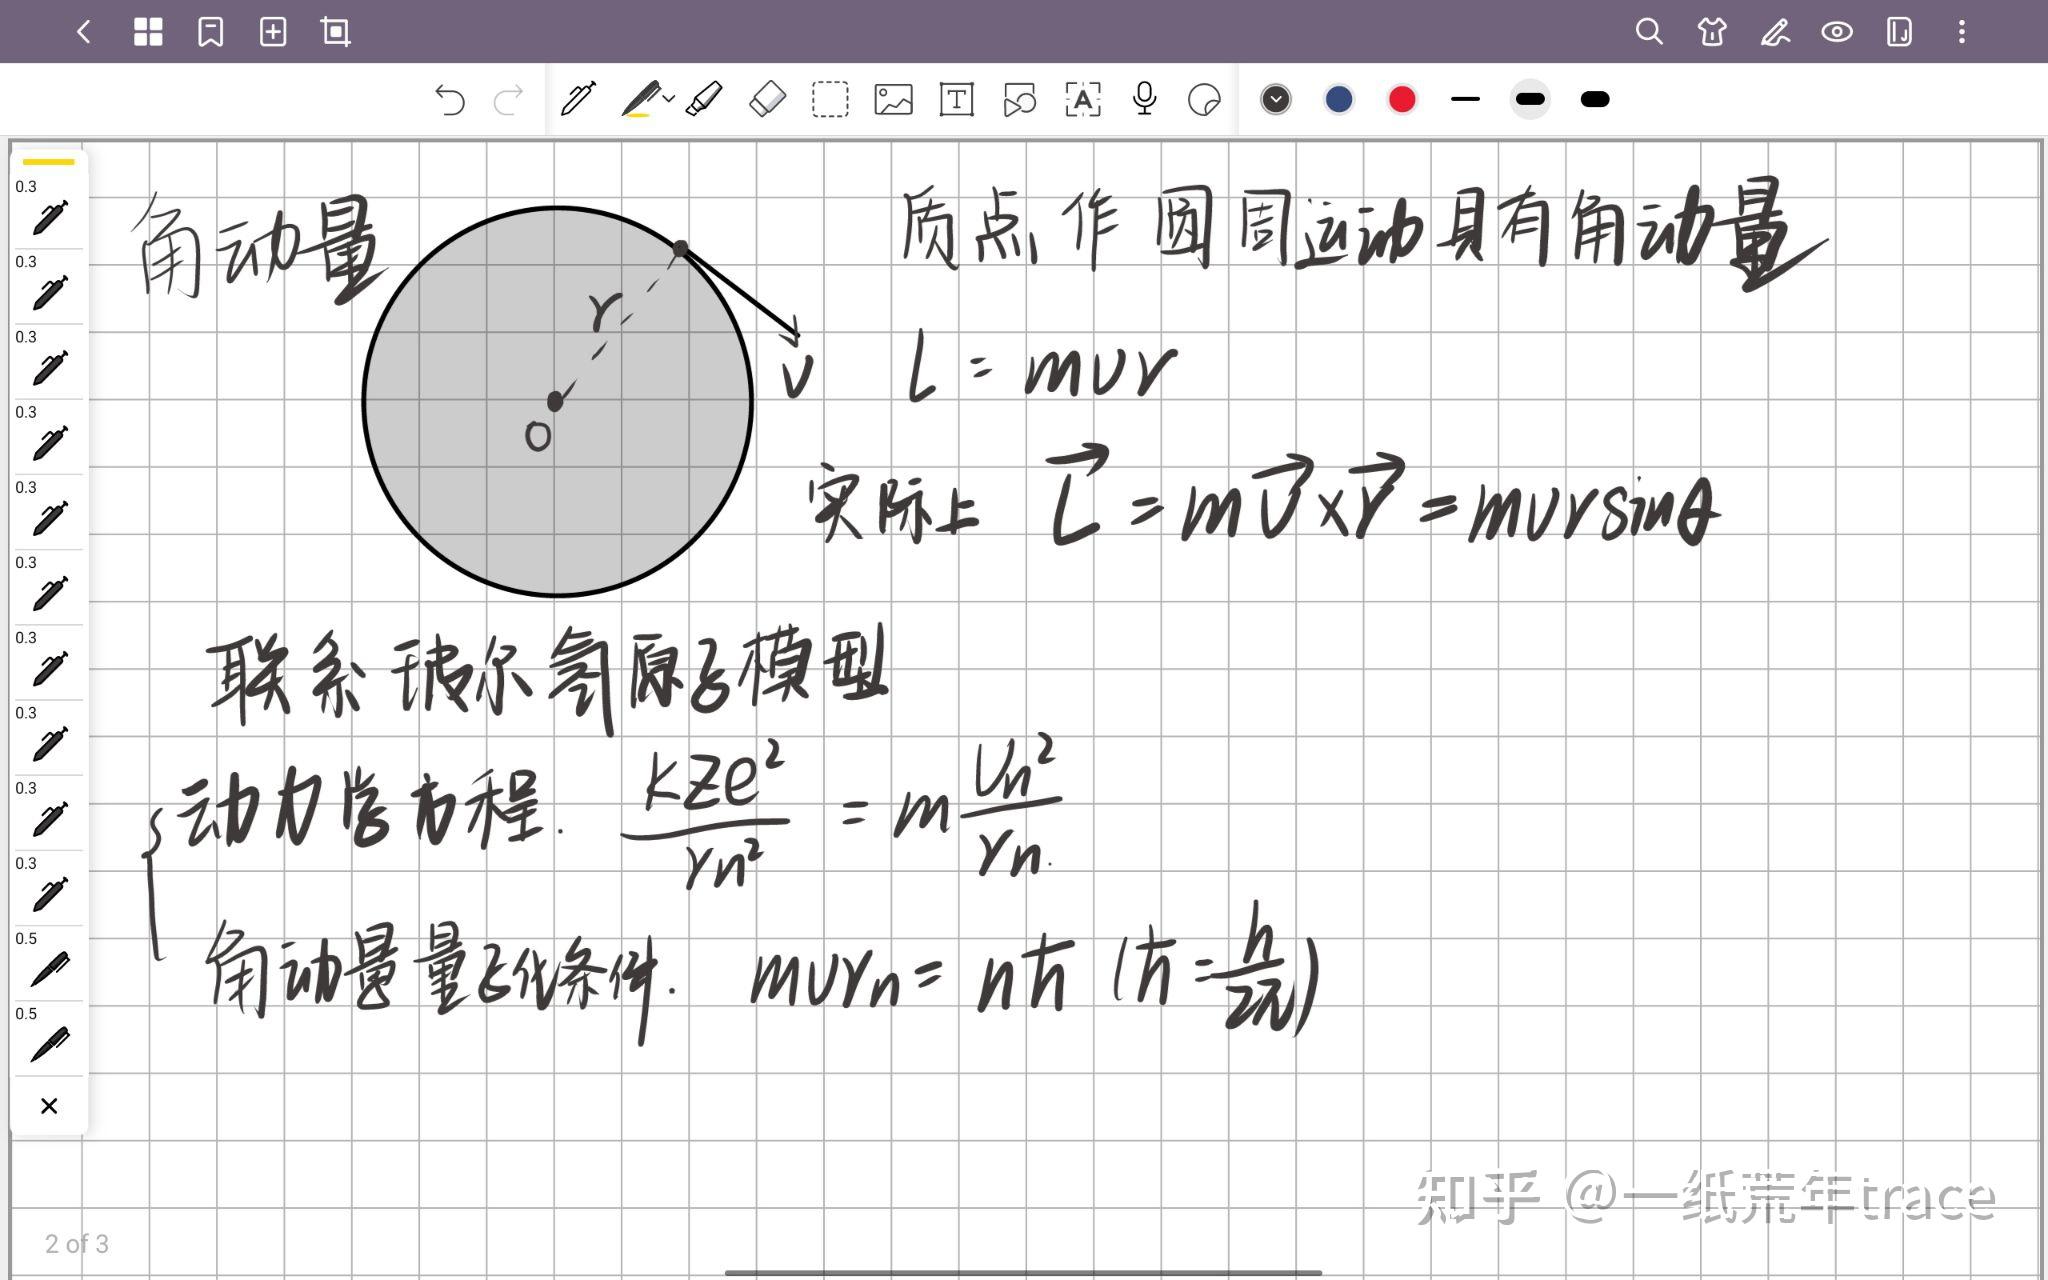 0.3
0.3
0.3
0.3
0.3
0.3
0.3
0.3
0.3
0.3
0.5
0.5
角动量
r
O
v
质点作圆周运动具有角动量
L = mvr
实际上 \vec{L} = m\vec{v}×\vec{r} = mvrsinθ
联系玻尔氢原子模型
动力学方程. \frac{kze^2}{r_n^2} = m\frac{v_n^2}{r_n}.
角动量量子化条件. mvr_n = nħ (ħ = \frac{h}{2π})
知乎 @一纸荒年trace
2 of 3